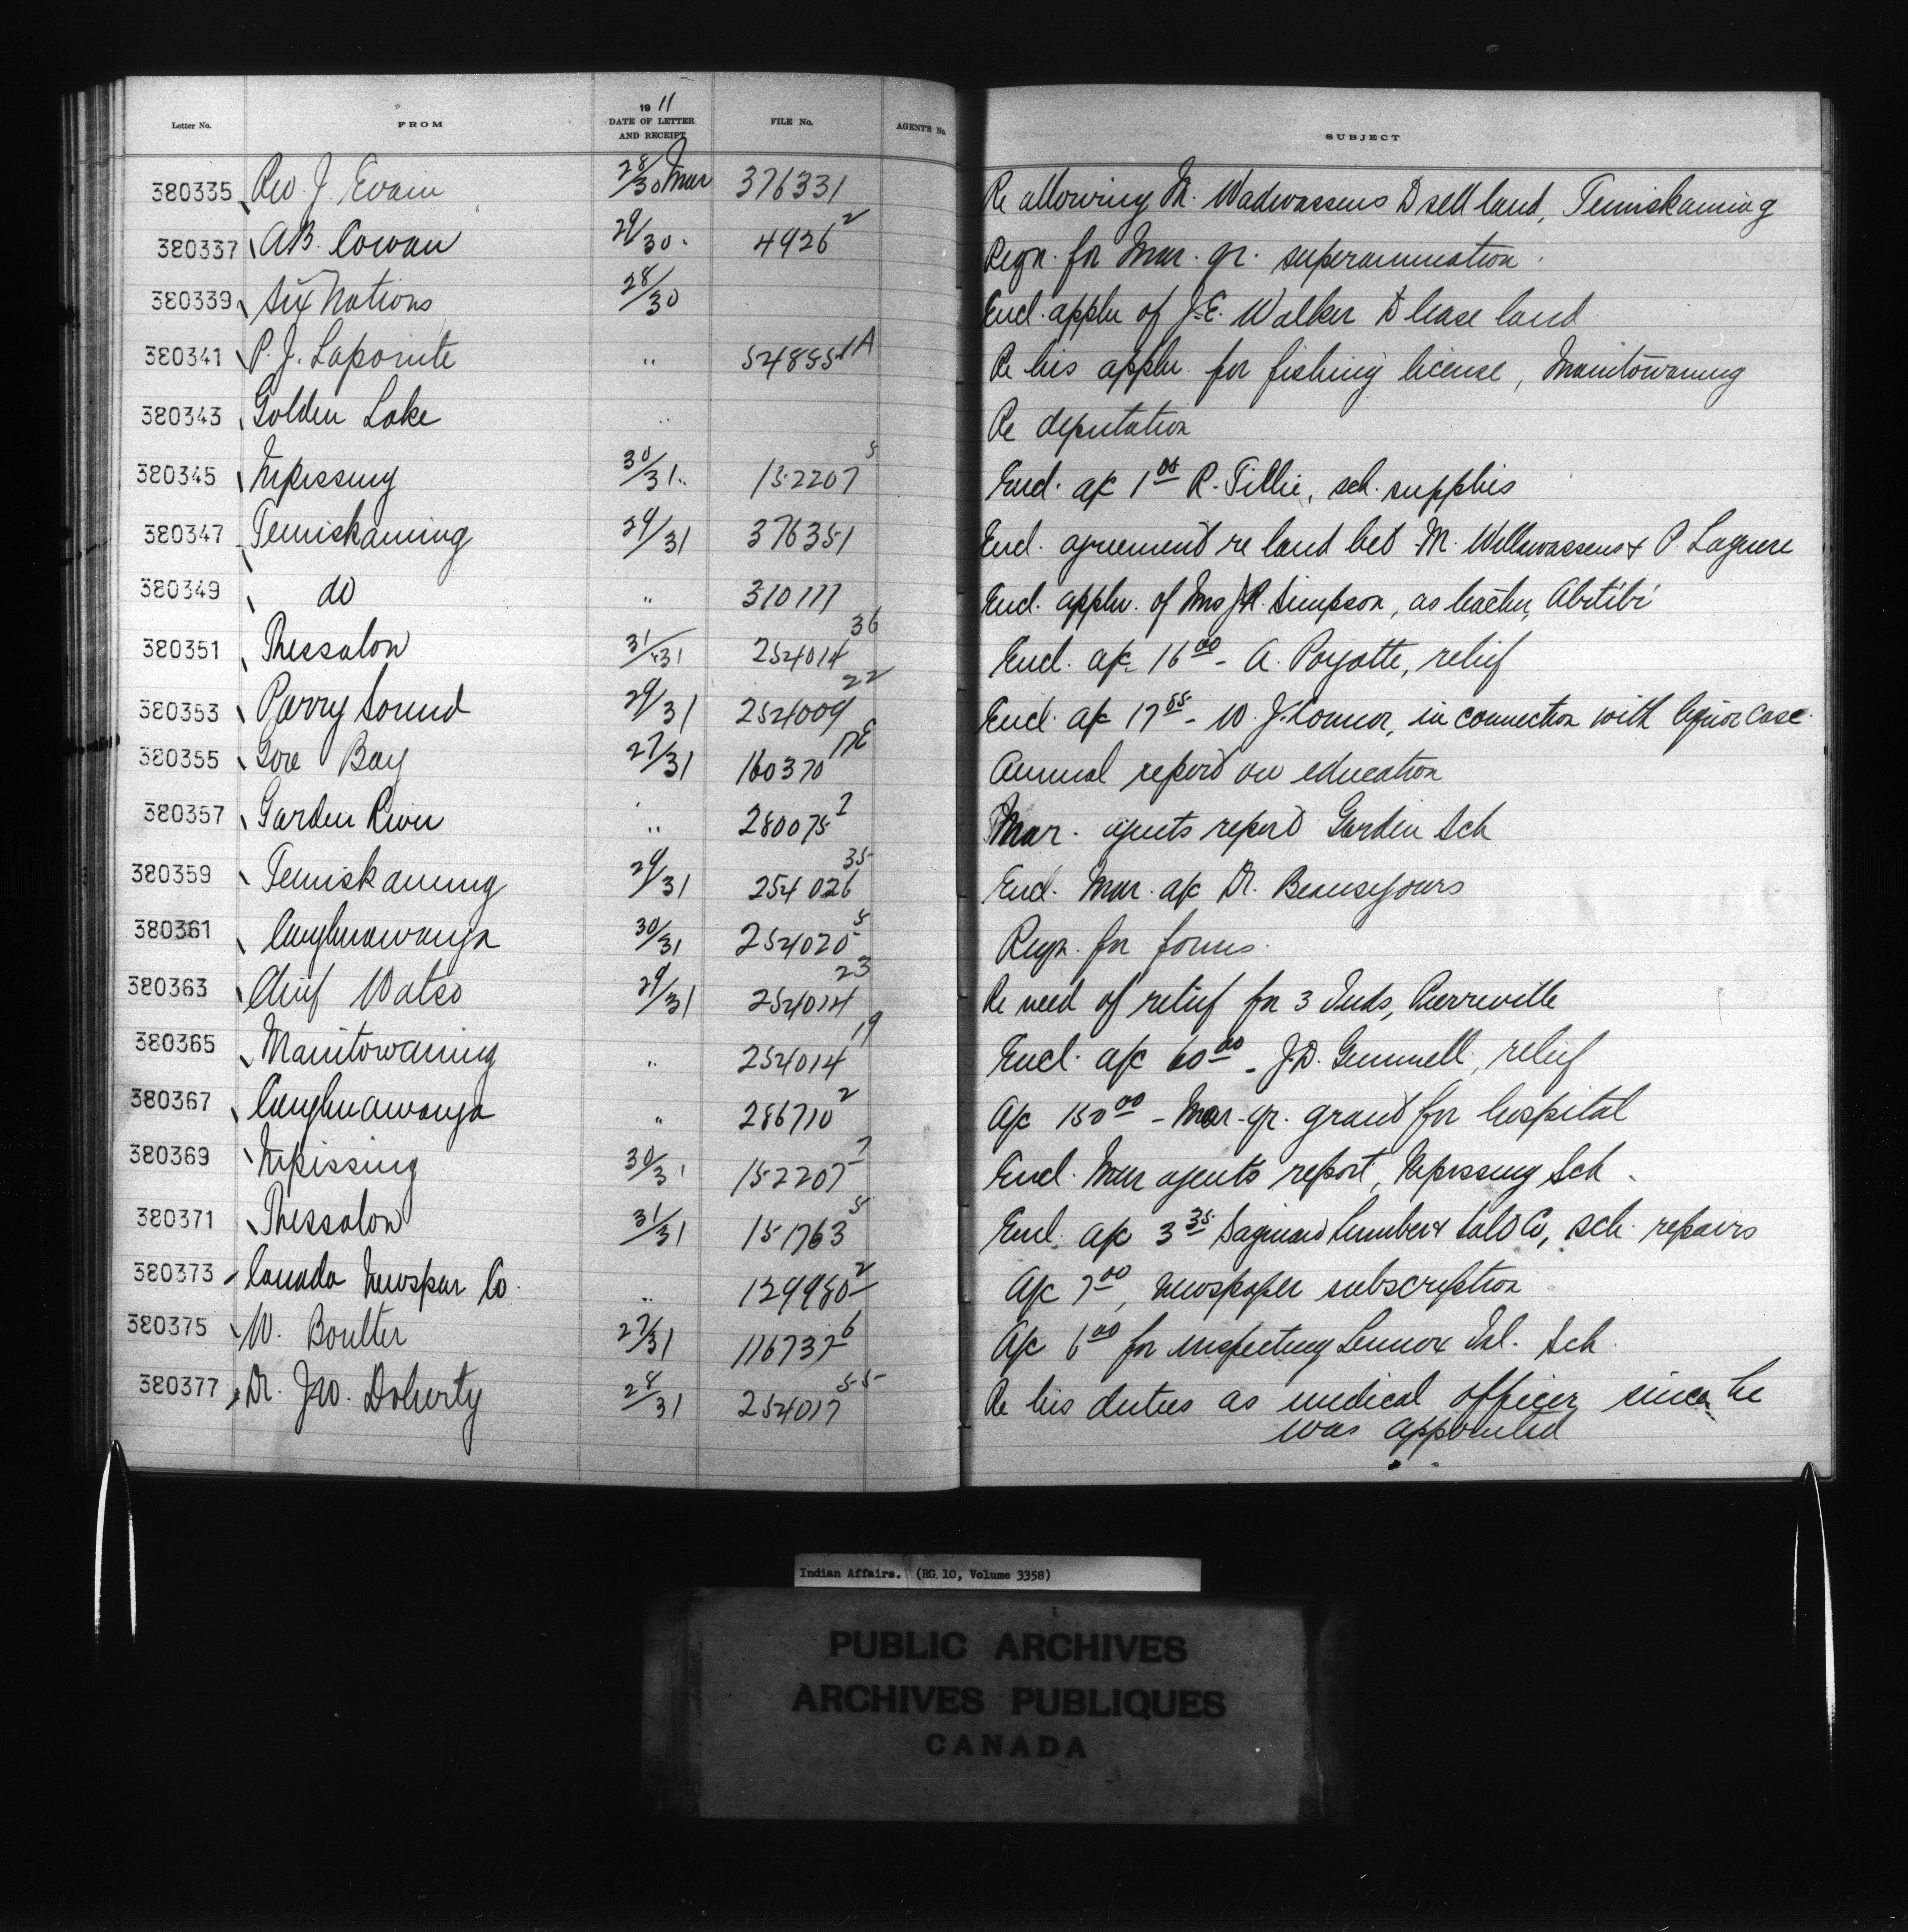 Letter No. FROM 1911 DATE OF LETTER AND RECEIPT FILE No. AGENT'S No. SUBJECT
380335 Rev. J. Evain 28/30 Mar 376331 Re allowing M. Wadwassens to sell land, Temiskaming
380337 A.B. Cowan 29/30 4926² Reqn. for Mar. qr. superannuation
380339 Six Nations 28/30 Encl. appln of J.E. Walker to lease land
380341 P. J. Lapointe " 54855 1A Re his appln. for fishing license, Manitowaning
380343 Golden Lake " Re deputation
380345 Nipissing 30/31 " 152207⁵ Encl. a/c 1⁰⁰ R. Tillie, sch. supplies
380347 Temiskaming 29/31 376351 Encl. agreement re land bet M. Wellswassens & P. Laguere
380349 do " 310177 Encl. appln. of Mrs J.R. Simpson, as teacher, Abitibi
380351 Thessalon 31/31 254014³⁶ Encl. a/c 16⁰⁰ - A. Poyotte, relief
380353 Parry Sound 29/31 254009²² Encl. a/c 17⁸⁵ - W. J. Connor, in connection with liquor case.
380355 Gore Bay 27/31 160370 17E Annual report on education
380357 Garden River " 280075² Mar. agents report Garden Sch
380359 Temiskaming 29/31 254026³⁵ Encl. Mar. a/c Dr. Beausejours
380361 Caughnawauga 30/31 254020⁵ Reqn. for forms.
380363 Chief Watso 29/31 254014²³ Re need of relief for 3 Inds, Pierreville
380365 Manitowaning " 254014¹⁹ Encl. a/c 60⁰⁰ - J.D. Gemmell, relief
380367 Caughnawauga " 286710² A/c 150⁰⁰ - Mar. qr. grant for hospital
380369 Nipissing 30/31 152207⁷ Encl. Mar agents report, Nipissing Sch.
380371 Thessalon 31/31 151763⁵ Encl. a/c 3³⁵ Saginaw Lumber & Salt Co, sch. repairs
380373 Canada Newspar Co. " 129950² A/c 7⁰⁰, Newspaper subscription
380375 W. Boulter 27/31 116737⁶ A/c 6⁰⁰ for inspecting Lennox Isl. Sch.
380377 Dr. Jno. Doherty 28/31 254017⁵⁵ Re his duties as medical officer since he
was appointed
Indian Affairs. (RG 10, Volume 3358)
PUBLIC ARCHIVES
ARCHIVES PUBLIQUES
CANADA